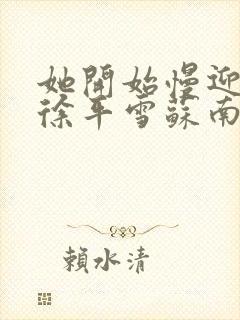 她開始慢迎
徐平雪蘇南
賴水清